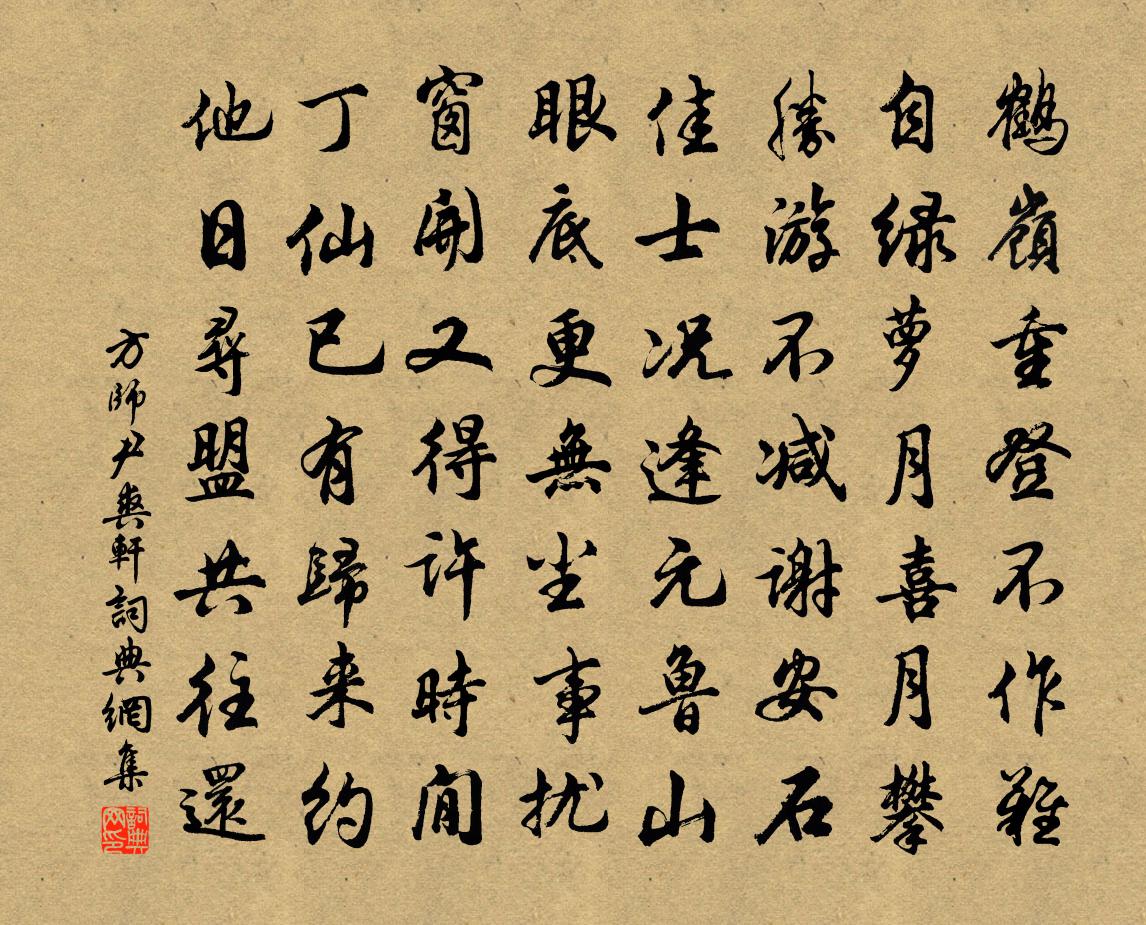 鶴嶺重登不作難
自緑夢月喜月攀
勝游不减謝安石
佳士况逢元魯山
眼底更無尘事扰
窗開又得許時閒
丁仙已有歸来約
他日尋盟共往還
方師尹爽軒詞典網集
詞典网印